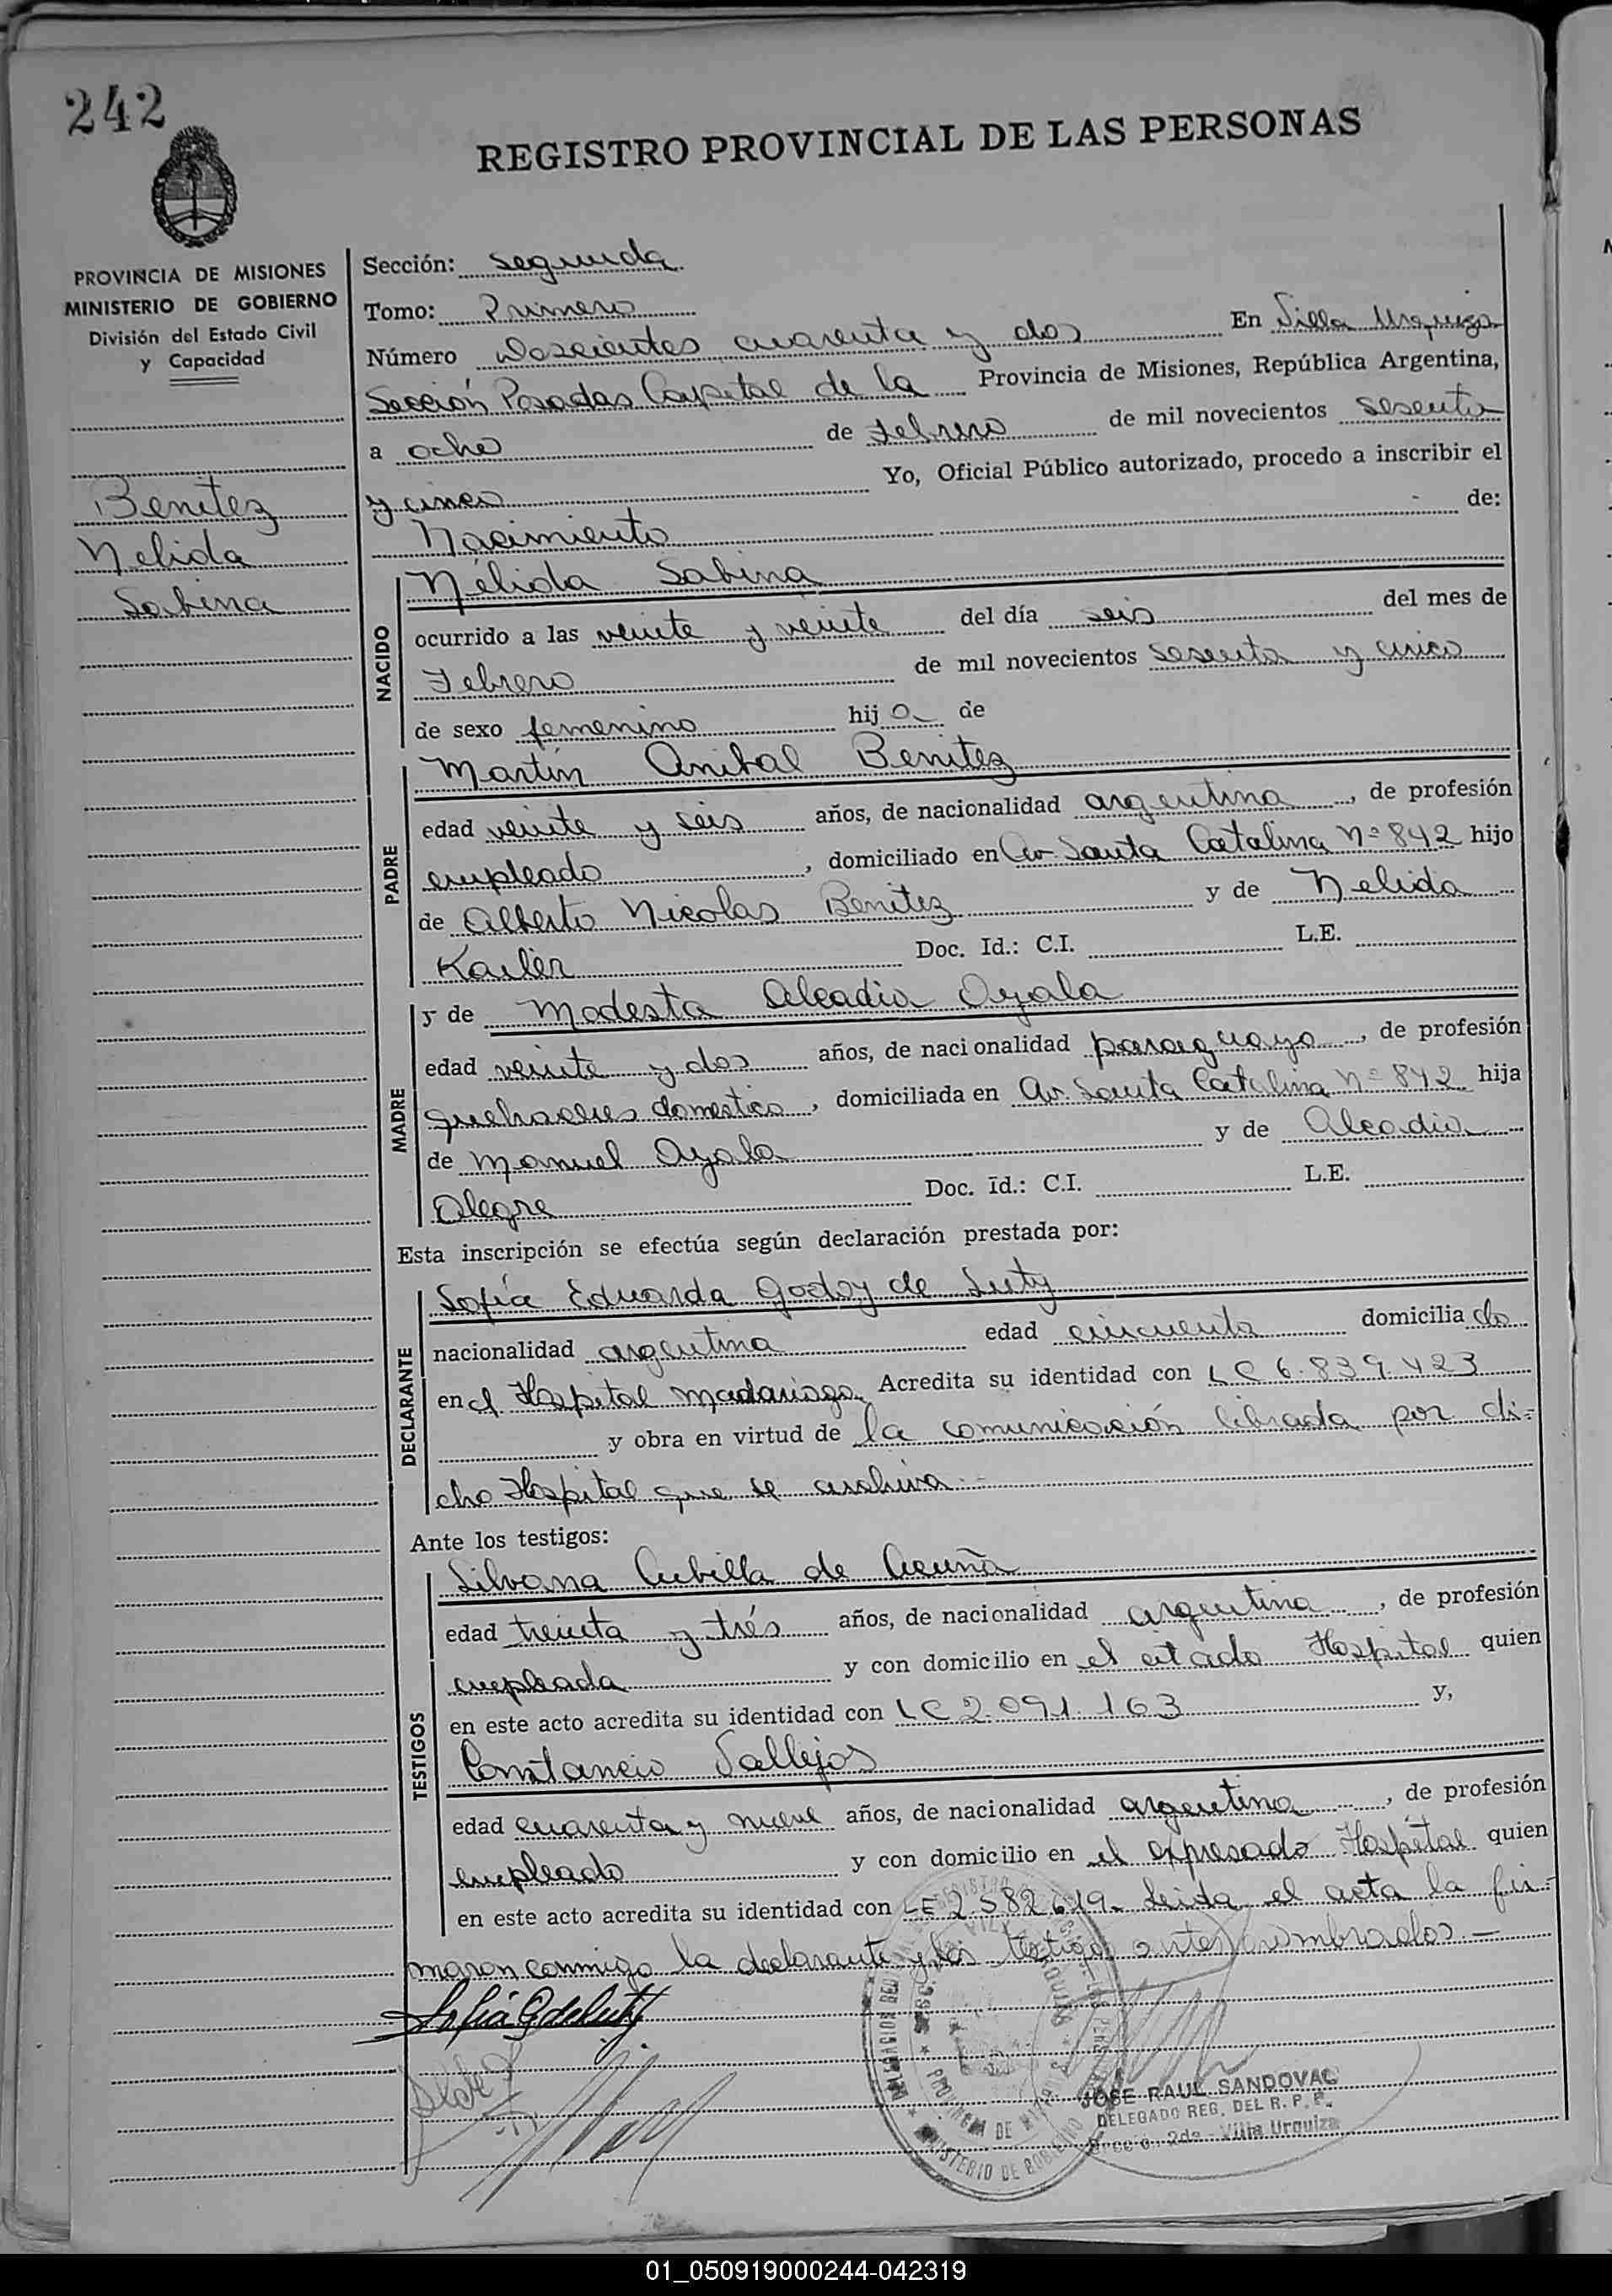 242
REGISTRO PROVINCIAL DE LAS PERSONAS
PROVINCIA DE MISIONES
MINISTERIO DE GOBIERNO
División del Estado Civil
y Capacidad
Benitez
Nelida
Sabina
Sección: segunda
Tomo: Primero
Número Doscientos cuarenta y dos En Villa Urquiza
Sección Posadas Capital de la Provincia de Misiones, República Argentina,
a ocho de Febrero de mil novecientos sesenta
y cinco Yo, Oficial Público autorizado, procedo a inscribir el
Nacimiento de:
NACIDO
Nélida Sabina
ocurrido a las veinte y veinte del día seis del mes de
Febrero de mil novecientos sesenta y cinco
de sexo femenino hija de
PADRE
Martín Anibal Benitez
edad veinte y seis años, de nacionalidad argentina, de profesión
empleado, domiciliado en Av. Santa Catalina Nº 842 hijo
de Alberto Nicolas Benitez y de Nelida
Kailer Doc. Id.: C.I. L.E.
MADRE
y de Modesta Alcadia Ayala
edad veinte y dos años, de nacionalidad paraguaya, de profesión
quehaceres domestico, domiciliada en Av. Santa Catalina Nº 842 hija
de Manuel Ayala y de Alcadia
Alegre Doc. Id.: C.I. L.E.
Esta inscripción se efectúa según declaración prestada por:
DECLARANTE
Sofía Eduarda Godoy de Luty
nacionalidad argentina edad cincuenta domiciliado
en el Hospital Madariaga Acredita su identidad con LC 6.839.423
y obra en virtud de la comunicación librada por di-
cho Hospital que se archiva.-
Ante los testigos:
TESTIGOS
Silvana Cubilla de Acuña
edad treinta y trés años, de nacionalidad argentina, de profesión
empleada y con domicilio en el citado Hospital quien
en este acto acredita su identidad con LC 2.091.163 y,
Constancio Vallejos
edad cuarenta y nueve años, de nacionalidad argentina, de profesión
empleado y con domicilio en el expresado Hospital quien
en este acto acredita su identidad con LE 2.582.619. Leida el acta la fir-
maron conmigo la declarante y los testigos antes nombrados.-
Sofia G de Luty
PROVINCIA DE MISIONES
MINISTERIO DE GOBIERNO
JOSE RAUL SANDOVAL
DELEGADO REG. DEL R. P. P.
Secció. 2da - Villa Urquiza
01_050919000244-042319